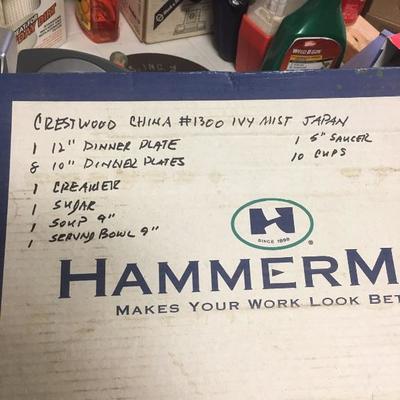 CRESTWOOD CHINA #1300 IVY MIST JAPAN
1 12" DINNER PLATE
8 10" DINNER PLATES
1 CREAMER
1 SUGAR
1 SOUP 9"
1 SERVING BOWL 9"
1 5" SAUCER
10 CUPS
H
SINCE 1898
®
HAMMERM
MAKES YOUR WORK LOOK BET